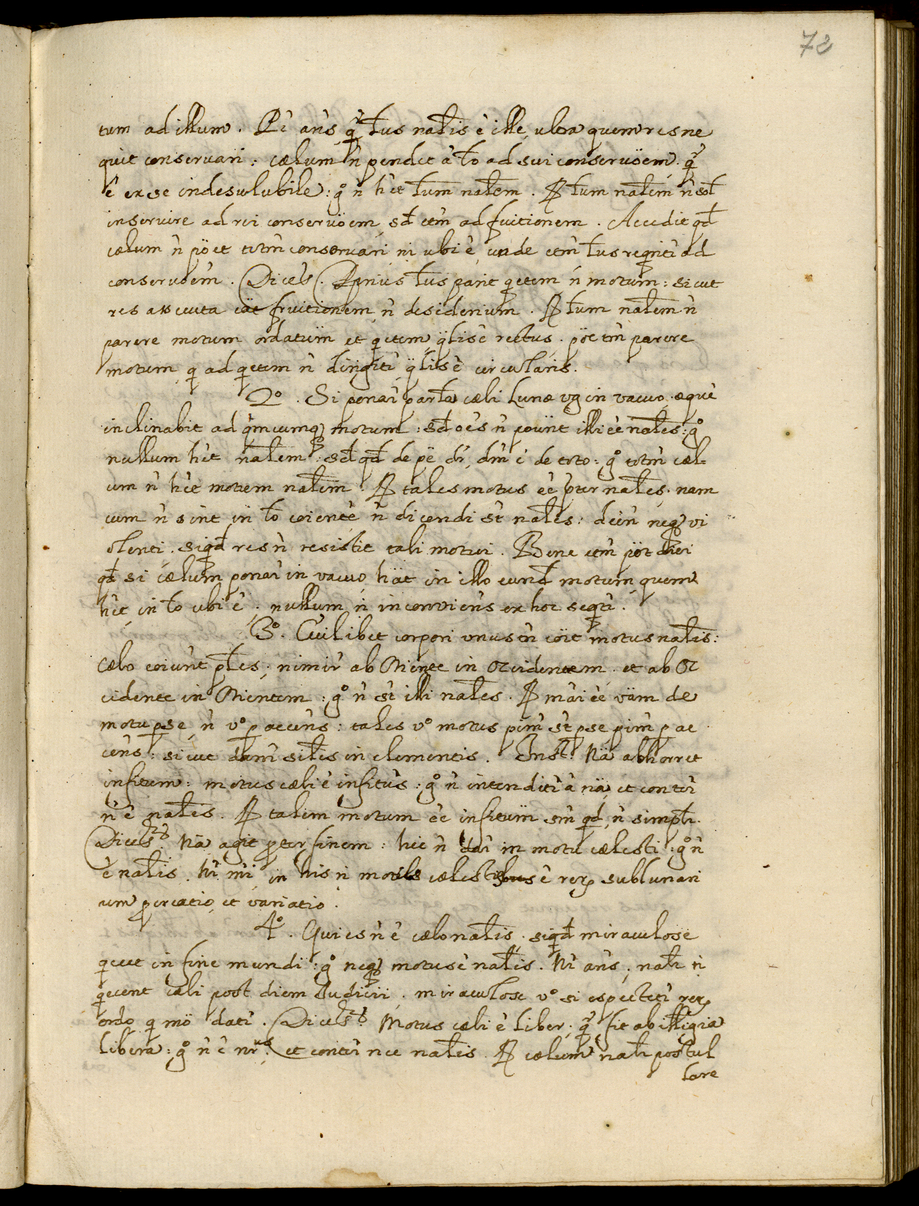 72
tum ad illum. Pr̃ ans q̃ l̃us nal̃is ẽ ille, ultra quem res ne
quit conservari: cælum ñ pendet a l̃o ad sui conserṽoem. q̃
ẽ ex se indesolubile: g° ñ h̃et l̃um nal̃em. R̃ l̃um nal̃em ñ sol̃
inservire ad rei conserṽoem, sd̃ etm̃ ad fruitionem. Accedit qd̃
cælum ñ p̃oet totm̃ conservari ni ubi ẽ, unde etm̃ l̃us reqritr̃ ad
conserṽoem̃. Dices. Prius l̃us parit q̃etem ñ motum: sicut
res assecuta fruitionem ñ desiderium. R̃ l̃um nal̃em ñ
parere motum ordatum̃ et q̃etem, q̃lis ẽ rectus. p̃oe tm̃ parere
motum, q̃ ad q̃etem ñ dirigitr̃ q̃lis ẽ circularis.
2°. Si ponar̃ part̃a cæli Lunæ vg̃ in vacuo æque
inclinabit ad q̃mcumq motum: sd̃ oẽs ñ poũnt illi ẽe nal̃es: g°
nullum h̃et nal̃em: sd̃ qd̃ de p̃e dr̃, dm̃ ẽ de toto: g° totm̃ cæl-
um ñ h̃et motum nal̃em. R̃ tales motus ẽe p̃ter nal̃es. nam
cum ñ sint in l̃o ñ dicendi st̃ nal̃es: dein̄ neq vi
olenti. siqd̃ res ñ resistit tali motui. Bene etm̃ p̃ot dici
qd̃ si cælum ponar̃ in vacuo, h̃at in illo eund̃ motum, quem
h̃et in l̃o ubi ẽ. nullum ñ inconvien̄s ex hoc seqtr̃.
3°. Cuilibet corpori unus tm̃ c̃oit motus nal̃is:
Cælo c̃oiunt pl̃es. nimir̃ ab Oriente in Occidentem. et ab Oc
cidente in Orientem: g° ñ st̃ illi nal̃es. R̃ maĩ ẽe ṽam de
motu p se, ñ v° p accen̄s: tales v° motus pim̃ st̃ p se pim̃ p ac
cen̄s: sicut dam̃ sil̃is in elementis. Inst. Ña abhorret
infitum: motus cæli ẽ infitus: g° ñ intenditr̃ a ña, et contr̃
ñ ẽ nal̃is. R̃ talem motum ẽe infitum̃ sm̃ qd̃, ñ simptr̃.
Dices. Ña agit p̃ter finem: hic ñ dar̃ in motu cælesti: g° ñ
ẽ nal̃is. N̄ mi in his ñ motus cælestibus ẽ rerũ sublunari
um
4°. Quies ñ ẽ cælo nal̃is. siqd̃ miraculose
q̃cet in fine mundi: g° neq motus ẽ nal̃is. N̄ ans, nal̃r ñ
q̃ecent cæli post diem Iudicii. miraculose v° si espectetr̃ rerũ
ordo q̃ mõ datr̃. Dices. Motus cæli ẽ liber: q̃ fit ab Intlligia
libera: g° ñ ẽ nr̃us, et contr̃ nec nal̃is. R̃ cælum nal̃r postul
lare